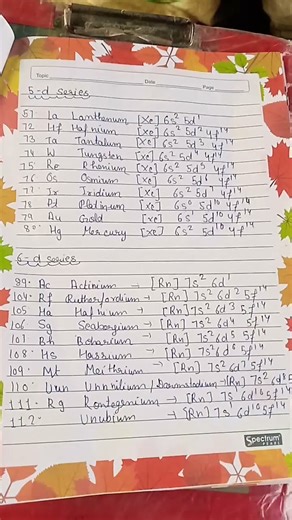 Topic Date Page
5-d series
57 La Lanthanum [Xe] 6s² 5d¹
72 Hf Hafnium [Xe] 6s² 5d² 4f¹⁴
73 Ta Tantalum [Xe] 6s² 5d³ 4f¹⁴
74 W Tungsten [Xe] 6s² 5d⁴ 4f¹⁴
75 Re Rhenium [Xe] 6s² 5d⁵ 4f¹⁴
76 Os Osmium [Xe] 6s² 5d⁶ 4f¹⁴
77 Ir Iridium [Xe] 6s² 5d 4f¹⁴
78 Platinum [Xe] 6s⁰ 5d¹⁰ 4f¹⁴
79 Au Gold [Xe] 6s¹ 5d¹⁰ 4f¹⁴
80 Hg Mercury [Xe] 6s² 5d¹⁰ 4f¹⁴
6-d series
Ac Actinium → [Rn] 7s² 6d¹
104 Rf Rutherfordium → [Rn] 7s² 6d² 5f¹⁴
105 Ha Hafnium → [Rn] 7s² 6d³ 5f¹⁴
106 Sg Seaborgium → [Rn] 7s² 6d⁴ 5f¹⁴
107 Bh Bohurium → [Rn] 7s² 6d⁵ 5f¹⁴
108 Hs Hassium → [Rn] 7s² 6d⁶ 5f¹⁴
109 Mt → [Rn] 7s² 6d⁷ 5f¹⁴
110 Uun → [Rn] 7s² 6d⁸
111 Rg → [Rn] 7s 6d¹⁰ 5f¹⁴
Unubium → [Rn] 7s 6d¹⁰ 5f¹⁴
Spectrum